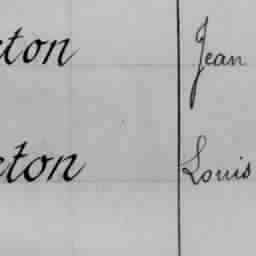 eton Jean
eton Louis